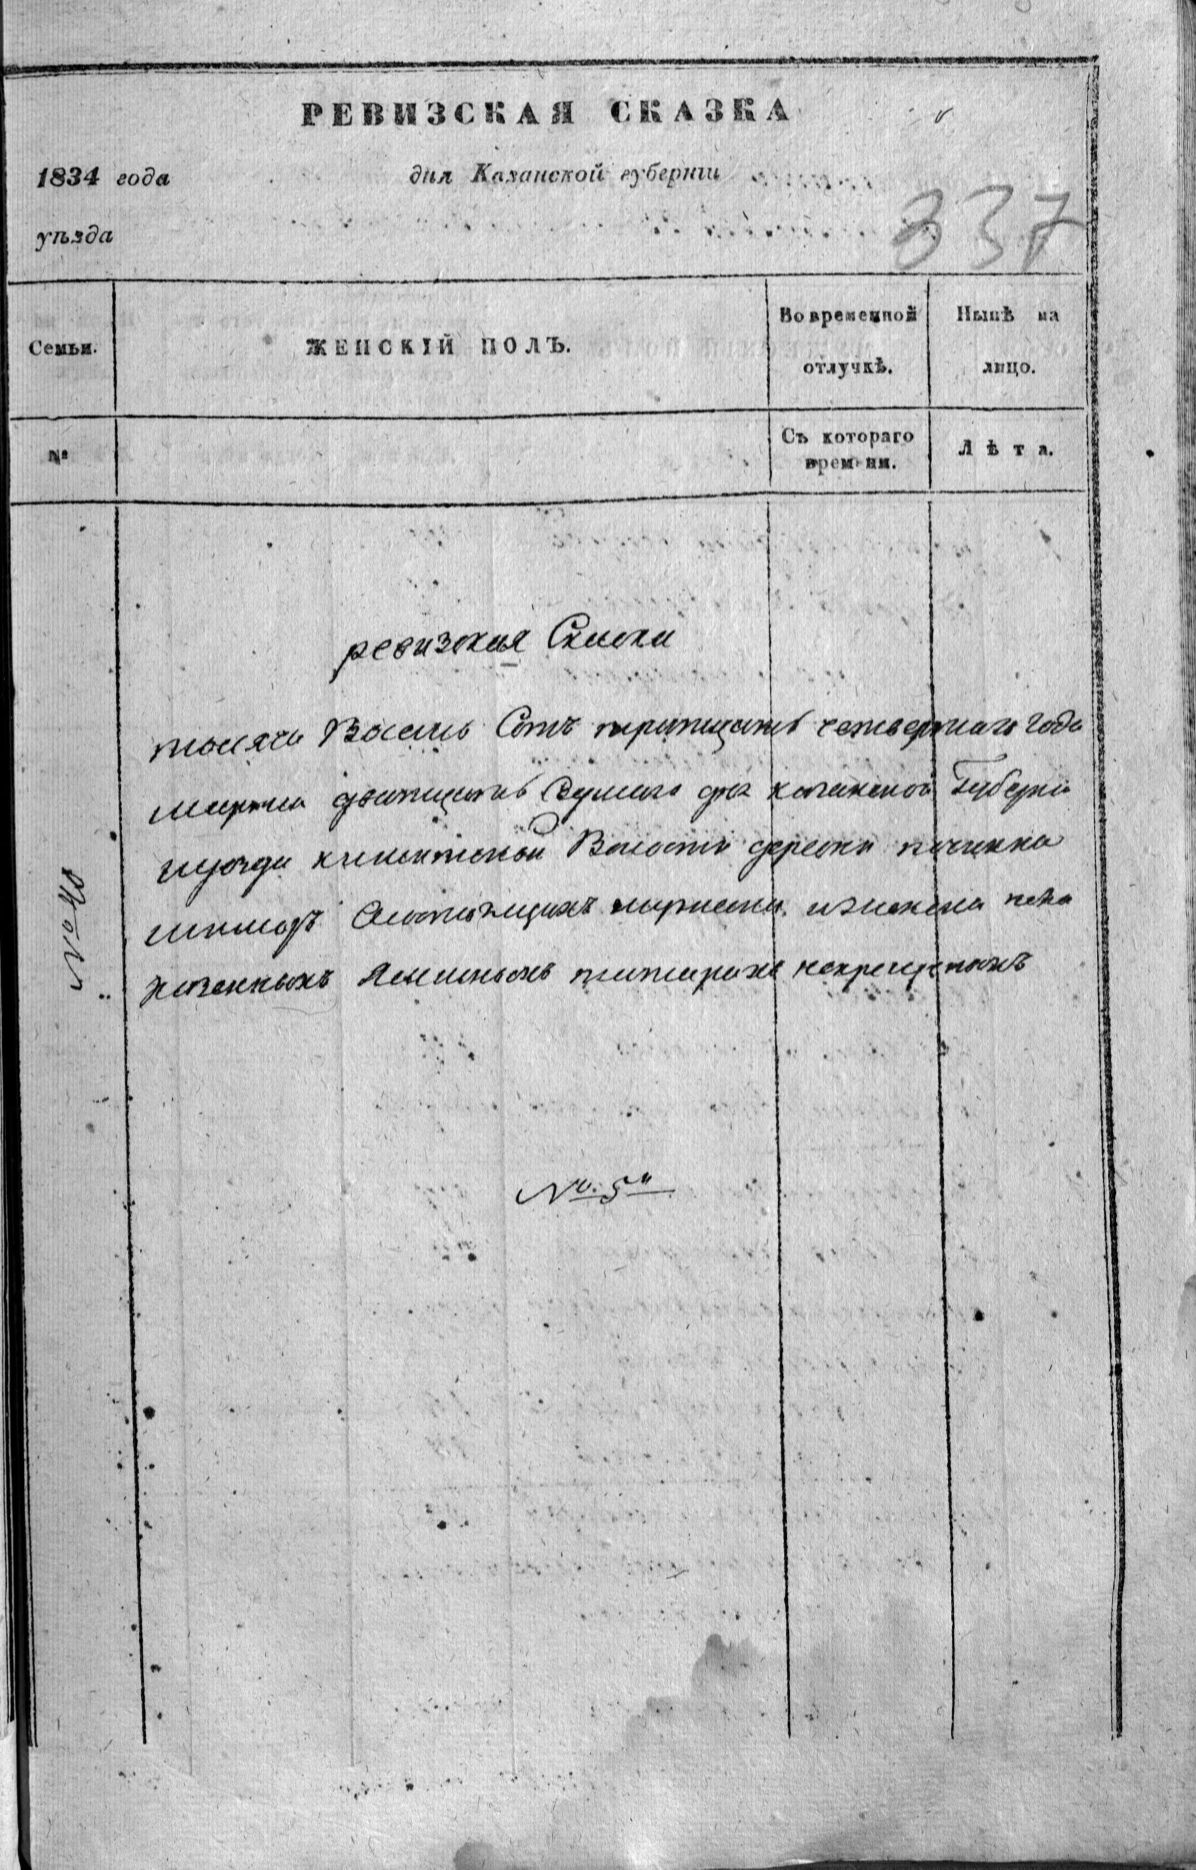 РЕВИЗСКАЯ СКАЗКА
1834 года дня Казанской губернии
337
уѣзда
Семьи. ЖЕНСКІЙ ПОЛЪ. Во временной отлучкѣ. Нынѣ на лицо.
№ Съ котораго времени. Лѣта.
ревизская Сказка
тысяча Восемь Сотъ тритцать четвертаго года
марта дватцать Седмаго дня казанской Губерни
уезда Волости деревни починка
Состоящихъ
казенныхъ татаръ некрещеныхъ
№ 40
№ 5й